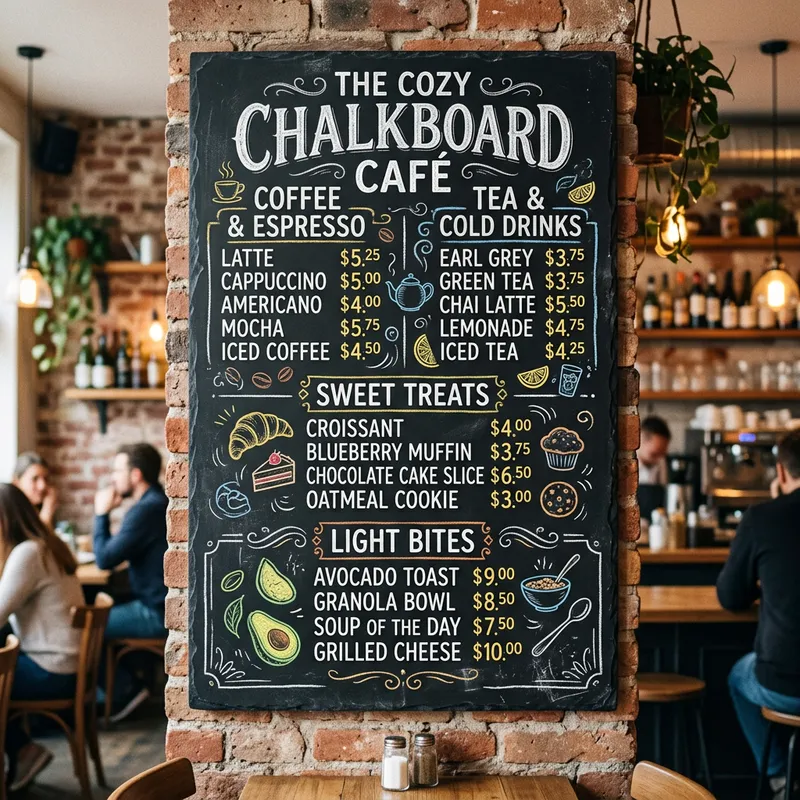 THE COZY
CHALKBOARD
CAFÉ
COFFEE
& ESPRESSO
LATTE $5.25
CAPPUCCINO $5.00
AMERICANO $4.00
MOCHA $5.75
ICED COFFEE $4.50
TEA &
COLD DRINKS
EARL GREY $3.75
GREEN TEA $3.75
CHAI LATTE $5.50
LEMONADE $4.75
ICED TEA $4.25
SWEET TREATS
CROISSANT $4.00
BLUEBERRY MUFFIN $3.75
CHOCOLATE CAKE SLICE $6.50
OATMEAL COOKIE $3.00
LIGHT BITES
AVOCADO TOAST $9.00
GRANOLA BOWL $8.50
SOUP OF THE DAY $7.50
GRILLED CHEESE $10.00